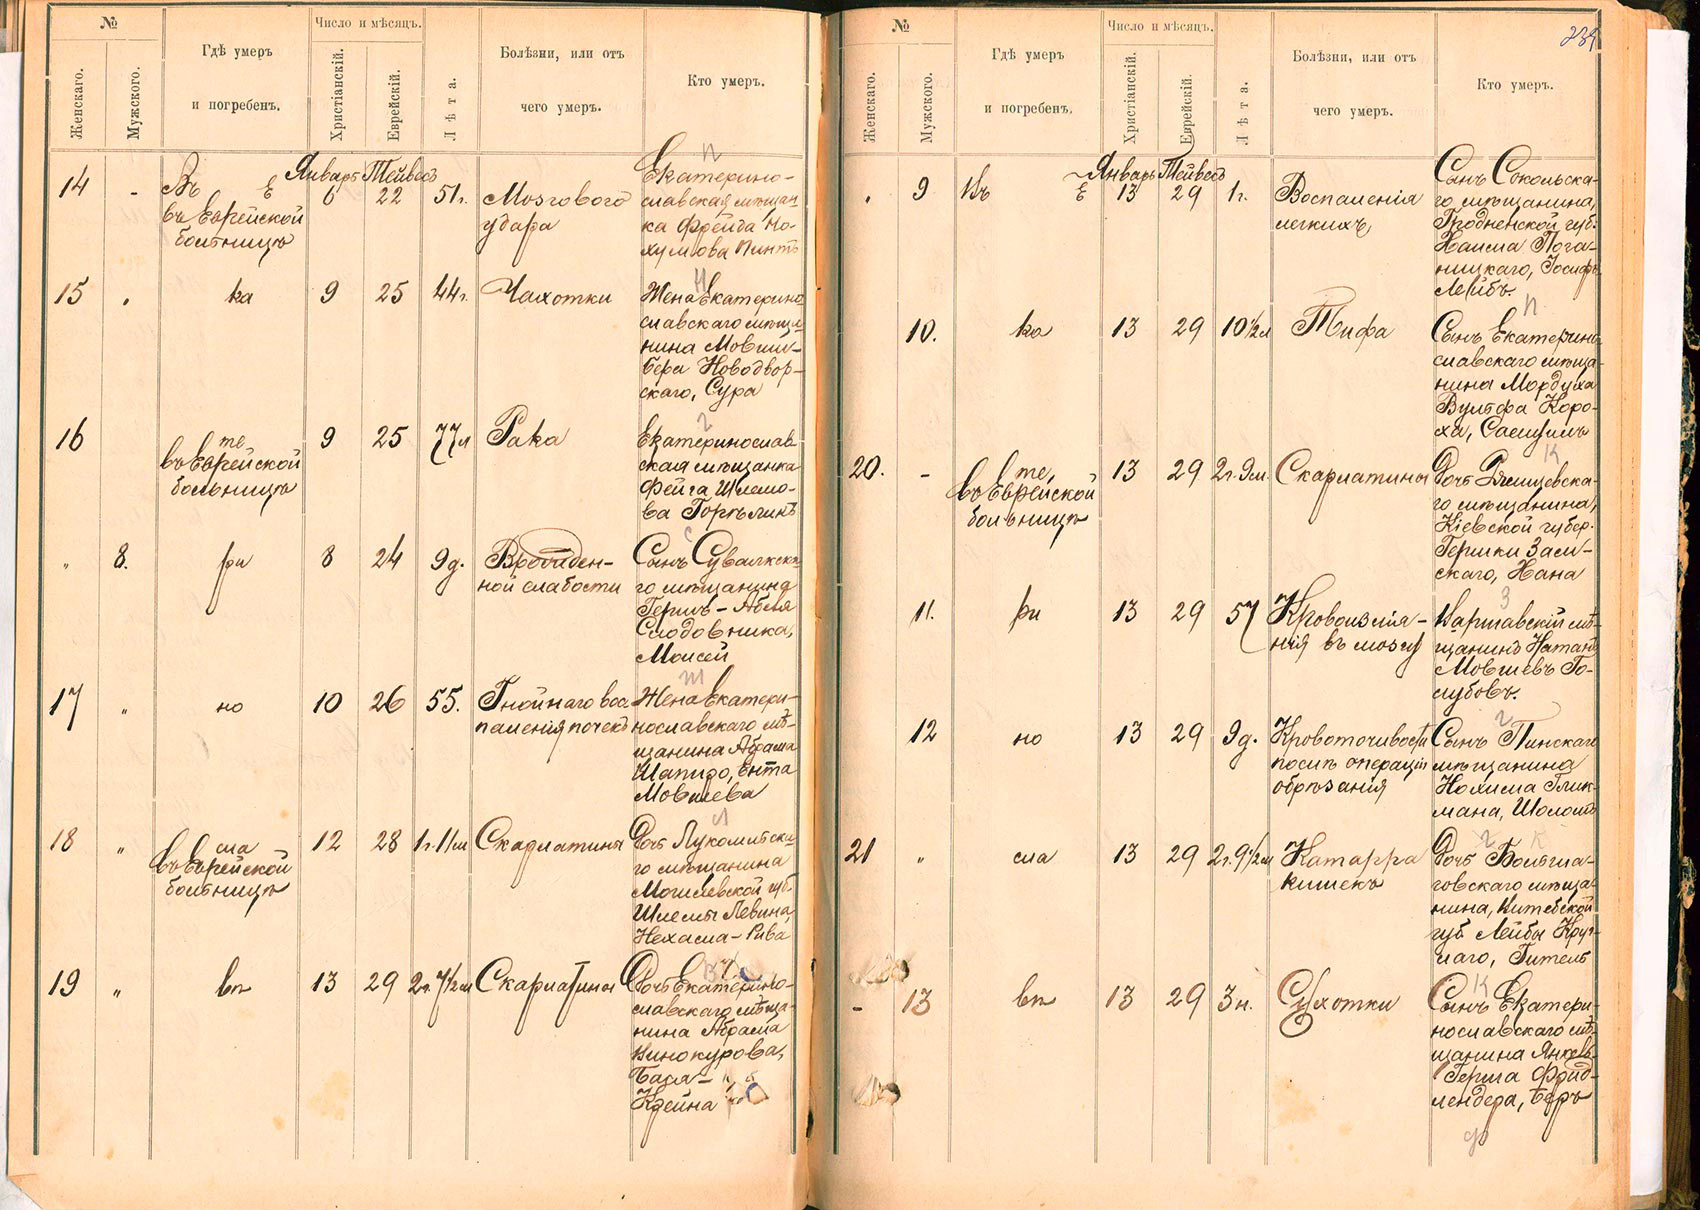 №
Число и мѣсяцъ.
Женскаго.
Мужского.
Гдѣ умеръ
и погребенъ.
Христіанскій.
Еврейскій.
Лѣта.
Болѣзни, или отъ
чего умеръ.
Кто умеръ.
Январь Тейвесъ
14 - Въ Е 6 22 51г. Мозгового
въ Еврейской удара
больницѣ
Екатерино-
славская мѣщан-
ка Фрейда Но-
хумова Пинтъ
15 ка 9 25 44г. Чахотки
Жена Екатерино
славскаго мѣща
нина Мовши-
бера Новодвор-
скаго, Сура
16 те 9 25 77л Рака
въ Еврейской
больницѣ
Екатеринослав
ская мѣщанка
Фейга Шлемо-
ва
" 8. ри 8 24 9д. Врожден-
ной слабости
Сынъ Сувалкска
го мѣщанина
Гершъ-Абеля
Слодовника,
Моисей
17 " но 10 26 55. Гнойнаго вос
паленія почекъ
Жена Екатери-
нославскаго мѣ-
щанина Абрама
Шапиро, Ента
Мовшева
18 " сла 12 28 1г. 11м Скарлатины
въ Еврейской
больницѣ
Дочь Лукомльска
го мѣщанина
Могилевской губ.
Шлемы Левина,
Нехама-Рива
19 " вѣ 13 29 2г. 7½м Скарлатины
Дочь Екатерино-
славскаго мѣща-
нина Абрама
Винокурова,
Бася-
Крейна
№
Число и мѣсяцъ.
239
Женскаго.
Мужского.
Гдѣ умеръ
и погребенъ.
Христіанскій.
Еврейскій.
Лѣта.
Болѣзни, или отъ
чего умеръ.
Кто умеръ.
Январь Тейвесъ
9 Въ Е 13 29 1г. Воспаленія
легкихъ
Сынъ Сокольска-
го мѣщанина,
Гродненской губ.
Хаима Пога-
ницкаго, Іосифъ
Лейбъ.
10. ка 13 29 10½м Тифа
Сынъ Екатерино
славскаго мѣща-
нина Мордуха
Вульфа Коро-
ха, Самуилъ
20. - те, 13 29 2г. 9м. Скарлатины
въ Еврейской
больницѣ
Дочь Ржищевска-
го мѣщанина,
Кіевской губер.
Гершки Засл-
скаго, Хана
11. ри 13 29 57 Кровоизлія-
нія въ мозгъ
Варшавскій мѣ-
щанинъ Натанъ
Мовшевъ Го-
лубовъ.
12 но 13 29 9д. Кровоточивости
послѣ операціи
обрѣзанія
Сынъ Пинскаго
мѣщанина
Нохима Глик-
мана, Шоломъ
21 " сла 13 29 2г. 9½м Катарра
кишекъ
Дочь
говскаго мѣща-
нина, Витебской
губ. Лейбы Круг-
лаго, Гитель
- 13 вѣ 13 29 3н. Сухотки
Сынъ Екатери-
нославскаго мѣ-
щанина Янкель-
Герша Фрид-
лендера, Беръ